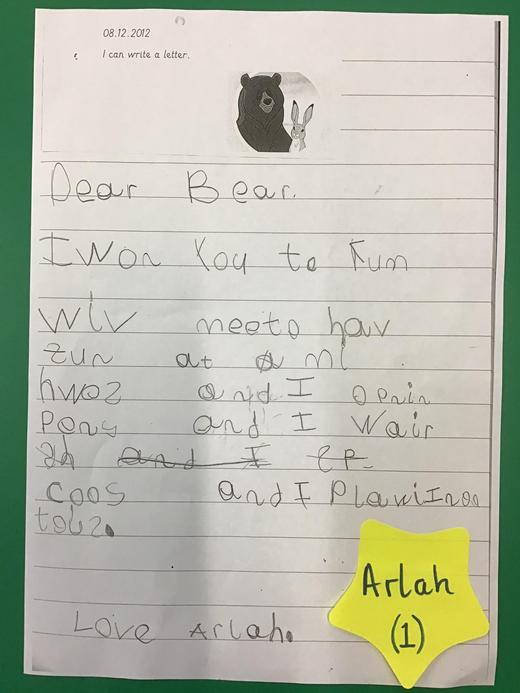 08.12.2012
I can write a letter.
Dear Bear.
I Won You to Kum
Wiv meeto hav
zun at a mi
hwoz and I opnin
Pony and I Wair
and I
coos and I PlawiInoo
toiz.
Love Arlah.
Arlah
(1)